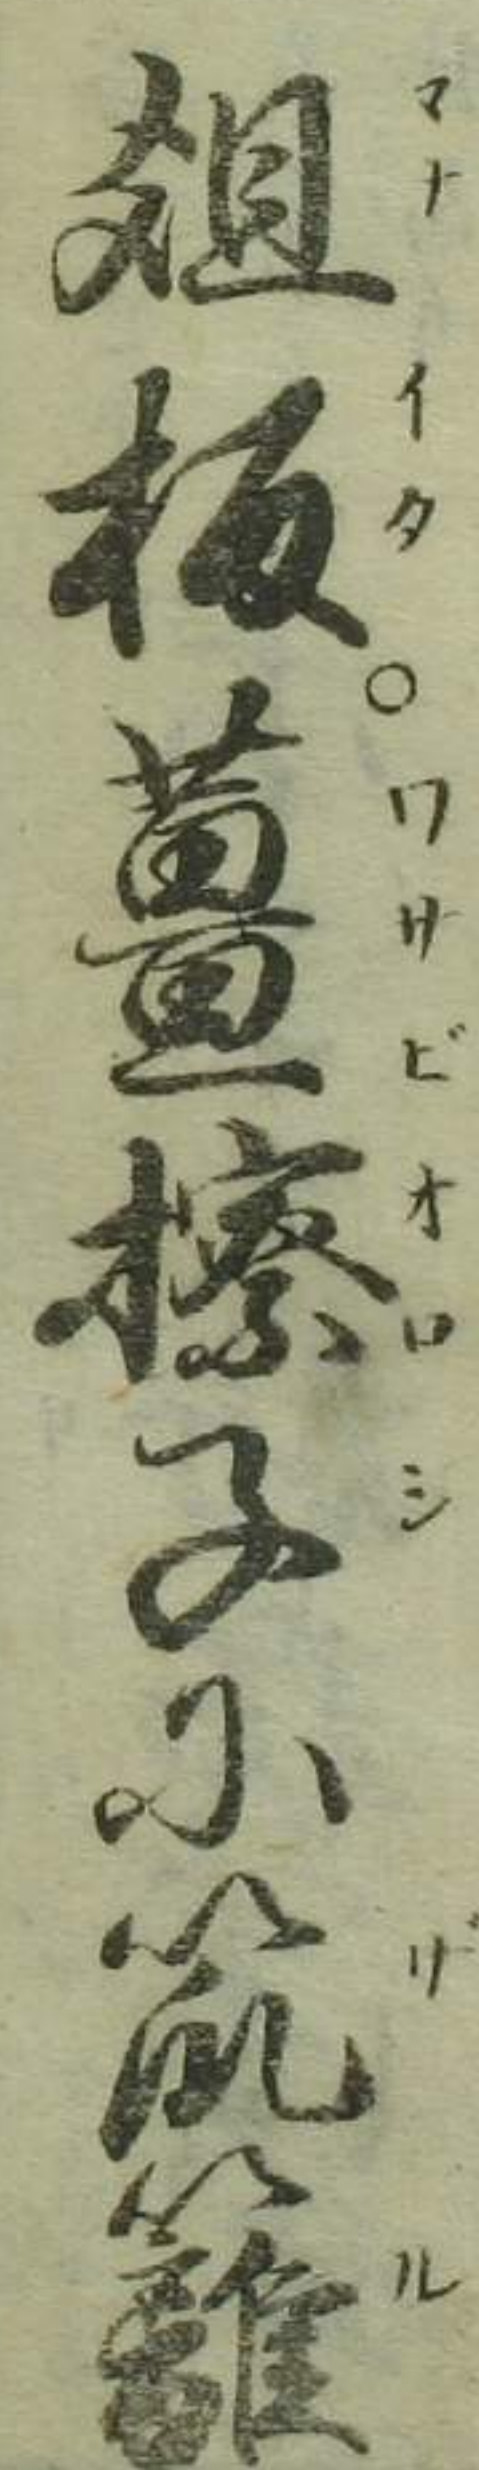 爼板○薑擦子小笊籬
マナイタ ワサビオロシ ザル